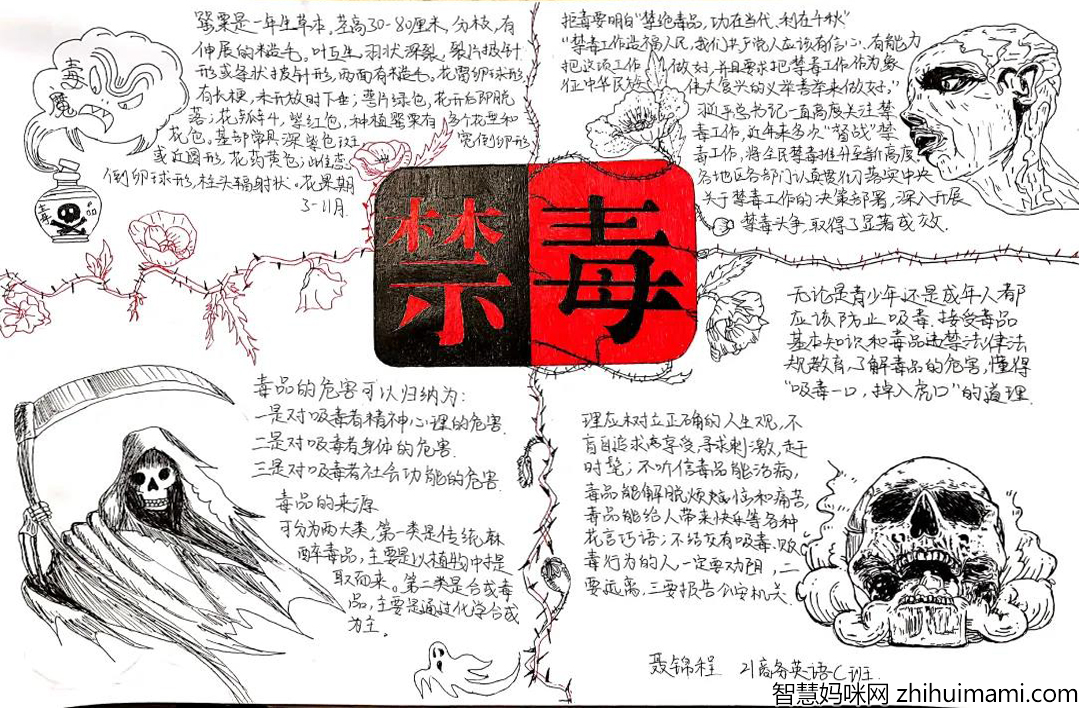 罂粟是一年生草本。茎高30-80厘米,分枝,有
伸展的糙毛。叶互生,羽状深裂,裂片披针
形或条状披针形,两面有糙毛。花蕾卵球形
有长梗,未开放时下垂;萼片绿色,花开后即脱
落;花瓣4,紫红色,种植罂粟有多个花型和
花色。基部常具深紫色
宽倒卵形
或近圆形,花药黄色;
倒卵球形,柱头辐射状。花果期
3-11月.
毒
魔
拒毒要明白“禁绝毒品,功在当代,利在千秋”
“禁毒工作造福人民,我们共产党人应该有信心、有能力
把这项工作做好,并且要求把禁毒工作作为象
征中华民族伟大复兴的义举善举来做好。”
习近平总书记一直高度关注禁
毒工作,近年来多次“督战”禁
毒工作,将全民禁毒推升至新高度
各地区各部门认真要们落实中央
关于禁毒工作的决策部署,深入开展
禁毒斗争,取得了显著成效.
禁毒
无论是青少年还是成年人都
应该防止吸毒.接受毒品
基本知识和毒品违禁法律法
规教育,了解毒品的危害,懂得
“吸毒一口,掉入虎口”的道理.
毒品的危害可以归纳为:
一是对吸毒者精神心理的危害.
二是对吸毒者身体的危害.
三是对吸毒者社会功能的危害.
毒品的来源
可分为两大类,第一类是传统麻
醉毒品,主要是以植物中提
取而来。第二类是合成毒
品,主要是通过化学合成
为主.
理应树立正确的人生观,不
盲目追求享受,寻求刺激,赶
时髦;不听信毒品能治病,
毒品能解脱烦恼和痛苦,
毒品能给人带来快乐等各种
花言巧语;不结交有吸毒、贩
毒行为的人一定要劝阻,二
要远离,三要报告公安机关.
聂锦程 21商务英语C班
智慧妈咪网 zhihuimami.com